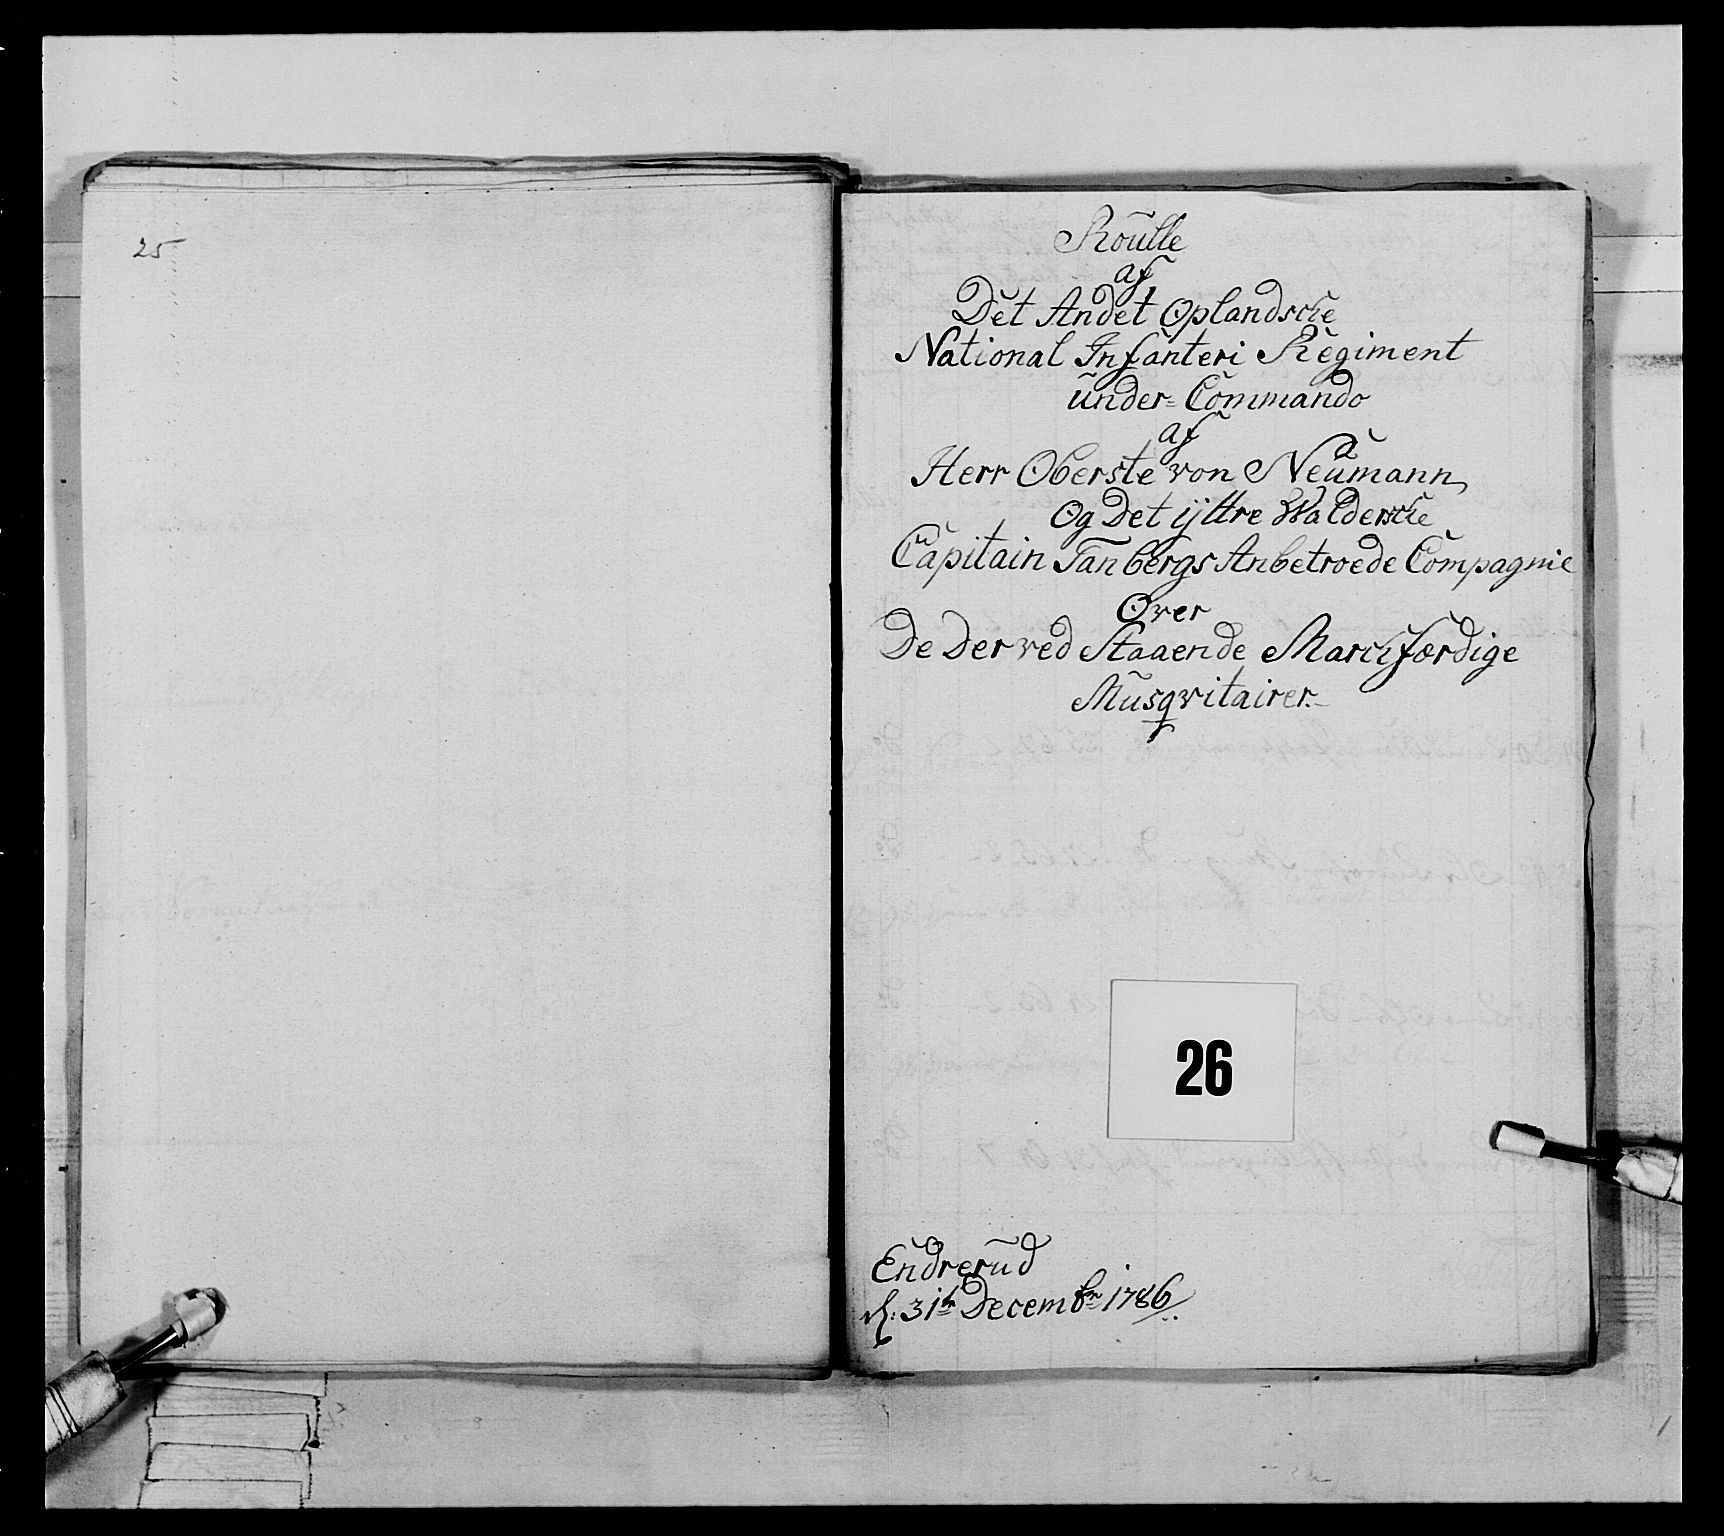 25
Roulle
af
Det Andet Oplandsche
National Infanteri Regiment
under= Commando
af
Herr Oberste von Neumann
Og Det ijttre Waldersche
Capitain Tanbergs Anbetroede Compagnie
Over
De Der ved Staaende Marchfærdige
Musqvitairer.
26
Endrerud
d: 31te Decembr 1786